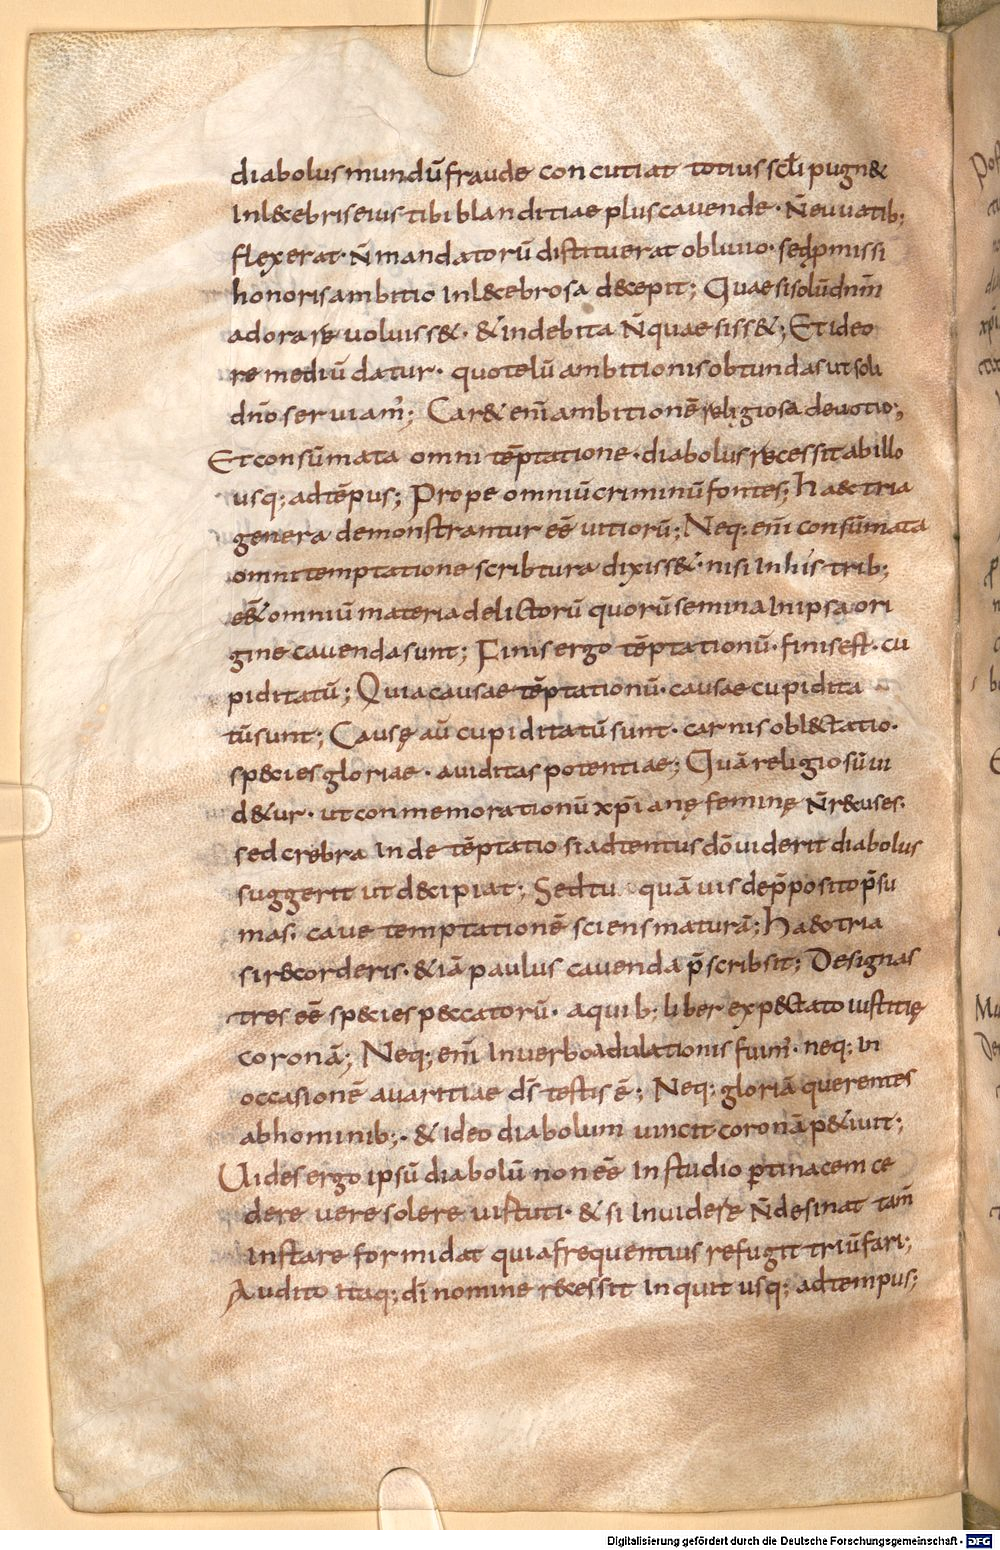 diabolus mundū fraude concutiat totius scłi pugn&
Inl&ebris eius tibi blanditiae plus cavende · N̄ euuatib;
flexerat · N̄ mandatorū distituerat obliuio · sed p̱missi
honoris ambitio Inl&ebrosa decepit; Quae si solū dn̄m
adorare uoluiss& · & indebita N̄ quaesiss&; Et ideo
remediū datur · quo telū ambitionis obtundas ut soli
dn̄o seruiam̄; Car& eni̅ ambitionē religiosa deuotio;
Et consūmata omni tēptatione · diabolus recessit ab illo
usq; ad tēpus; Prope omniū criminū fontes; haec tria
genera demonstrantur eē uitiorū; Neq; eni̅ consūmata
omni temptatione scribtura dixiss& · nisi In his trib;
eē& omniū materia delictorū quorū semina In ipsa ori
gine cauenda sunt; Finis ergo tēptationū · finis est · cu
piditatū; Quia causae tēptationū · causae cupidita
tū sunt; Causę aū cupiditatū sunt · carnis oblectatio ·
species gloriae · auiditas potentiae; Quā religiosū ui
d&ur · ut conmemorationū xp̄ianę feminę N̄ r&uses ·
sed crebra Inde tēptatio si adtentus dō uiderit diabolus
suggerit ut decipiat; Sed tu quā uis de p̄posito p̄su
mas · caue temptationē sciens maturā; haec tria
si recorderis · & iā paulus cauenda p̄scribsit; Designas
tres eē species peccatorū · a quib; liber expectato iustitię
coronā; Neq; eni̅ In uerbo adulationis fuim̄ · neq; In
occasionē auaritiae ds̄ testis ē; Neq; gloriā querentes
ab hominib; · & Ideo diabolum uincit coronā p&iuit;
Uides ergo ipsū diabolū non eē In studio ꝑtinacem ce
dere uere solere uirtuti · & si Inuidere N̄ desinat tam̄
Instare formidat quia frequentius refugit triūfari;
Audito Itaq; di̅ nomine recessit Inquit usq; ad tempus;
Digitalisierung gefördert durch die Deutsche Forschungsgemeinschaft - DFG